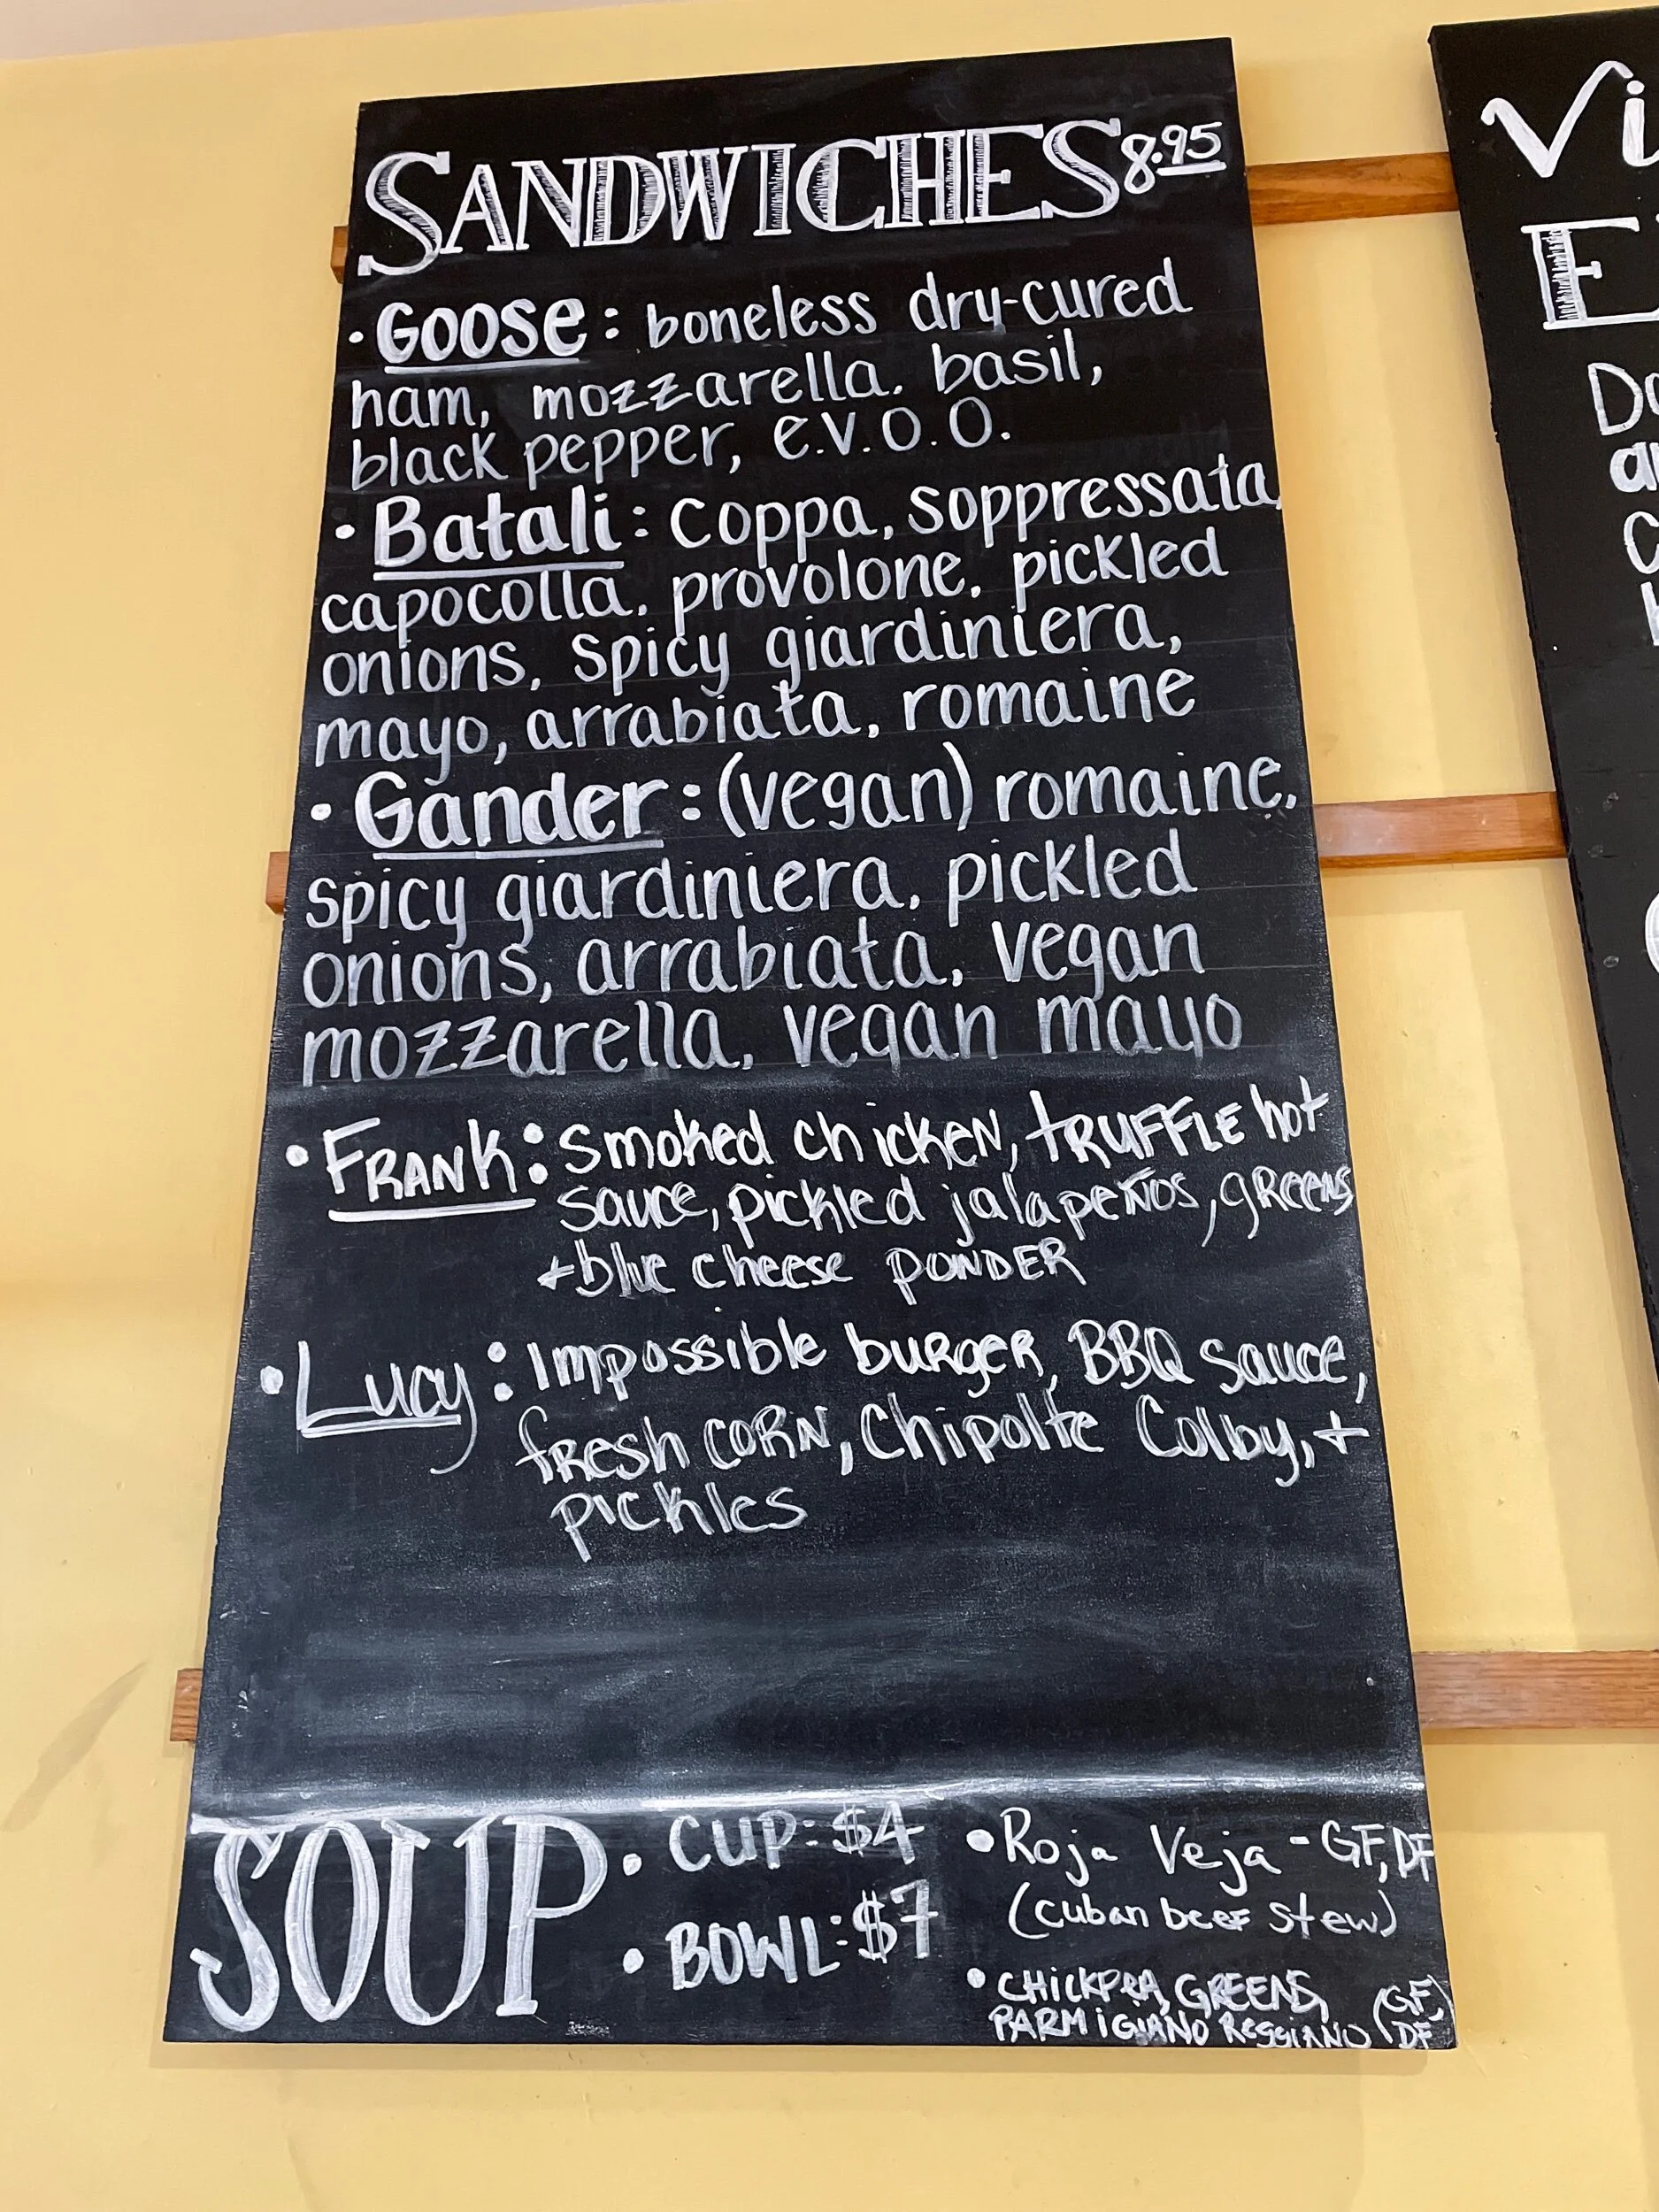 SANDWICHES 8.95
· Goose: boneless dry-cured
ham, mozzarella, basil,
black pepper, e.v.o.o.
· Batali: coppa, soppressata,
capocolla, provolone, pickled
onions, spicy giardiniera,
mayo, arrabiata, romaine
· Gander: (vegan) romaine,
spicy giardiniera, pickled
onions, arrabiata, vegan
mozzarella, vegan mayo
• FRANK: Smoked chicken, TRUFFLE hot
sauce, pickled jalapeños, greens
+ blue cheese POWDER
• Lucy: Impossible burger, BBQ sauce,
fresh corn, Chipolte Colby, +
pickles
SOUP
• CUP: $4
• BOWL: $7
• Roja Veja - GF, DF
(cuban beef stew)
• CHICKPEA, GREENS,
PARMIGIANO REGGIANO (GF, DF)
Vi
E
Do